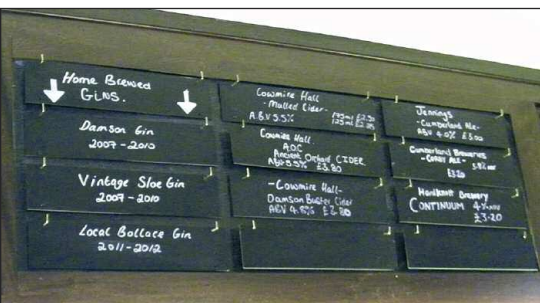 Home Brewed
GINS.
Damson Gin
2007-2010
Vintage Sloe Gin
2007-2010
Local Bollace Gin
2011-2012
Cowmire Hall
-Mulled Cider-
ABV 5.5%
175ml £2.50
125ml
Cowmire Hall
A.D.C
Ancient Orchard CIDER
ABV 5.5% £3.80
-Cowmire Hall-
Damson Buster Cider
ABV 4.8%
Jennings
-Cumberland Ale-
ABV 4.0% £3.00
Cumberland Breweries
-CORBY ALE-
£3.20
Hardknott Brewery
CONTINUUM 4%
£3.20